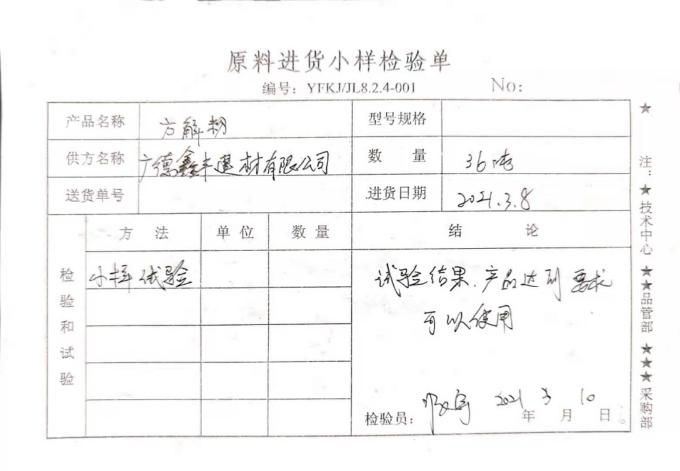 原料进货小样检验单
编号：YFKJ/JL8.2.4-001 No:
产品名称 方解粉 型号规格
供方名称 广德鑫丰建材有限公司 数量 36吨
送货单号 进货日期 2021.3.8
检验和试验 方法 单位 数量 结论
小样试验 试验结果、产品达到要求
可以使用
检验员： 2021年3月10日
★ 注：★技术中心 ★★品管部 ★★★采购部